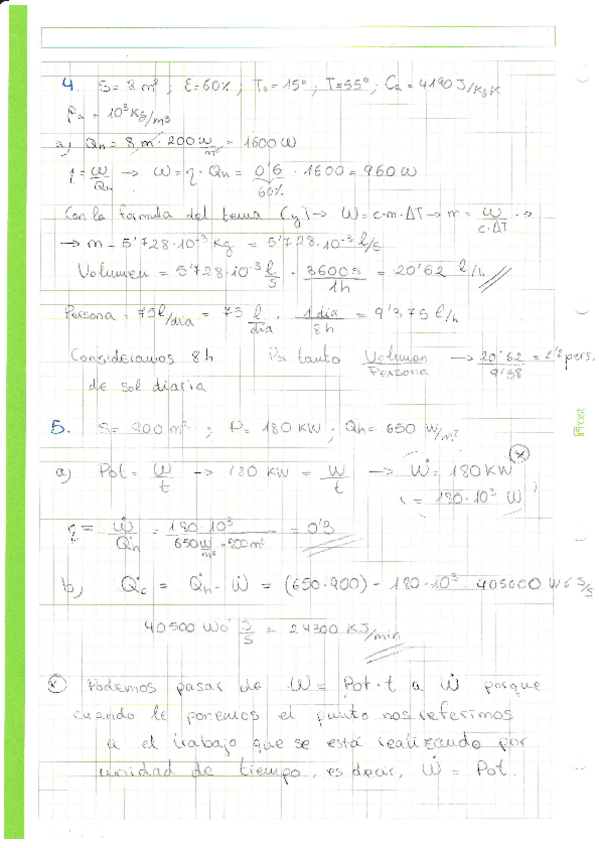 4. S = 8 m²; ε = 60%; T₀ = 15°; T = 55°; Ca = 4190 J/kg K
ρa = 10³ kg/m³
a) Qh = 8 m² · 200 W/m² = 1600 W
η = W/Qh → W = η · Qh = 0'6 · 1600 = 960 W
60%
Con la formula del tema (y) → W = c·m·ΔT → m = W/c·ΔT →
→ m = 5'728·10⁻³ Kg = 5'728·10⁻³ l/s
Volumen = 5'728·10⁻³ l/s · 3600s/1h = 20'62 l/h
Persona = 75 l/día = 75 l/día · 1día/8h = 9'375 l/h
Consideramos 8h Por tanto Volumen/Persona → 20'62/9'38 = 2'2 pers.
de sol diaria
5. S = 900 m²; P = 180 KW; Qh = 650 W/m²
a) Pot = W/t → 180 KW = W/t → Ẇ = 180 KW (*)
= 180·10³ W
η = Ẇ/Q̇h = 180·10³/650 W/m² · 900 m² = 0'3
b) Q̇c = Q̇h - Ẇ = (650·900) - 180·10³ 405000 W ó J/s
40500 W ó J/s = 24300 KJ/min
(*) Podemos pasar de W = Pot·t a Ẇ porque
cuando le ponemos el punto nos referimos
a el trabajo que se está realizando por
unidad de tiempo, es decir, Ẇ = Pot.